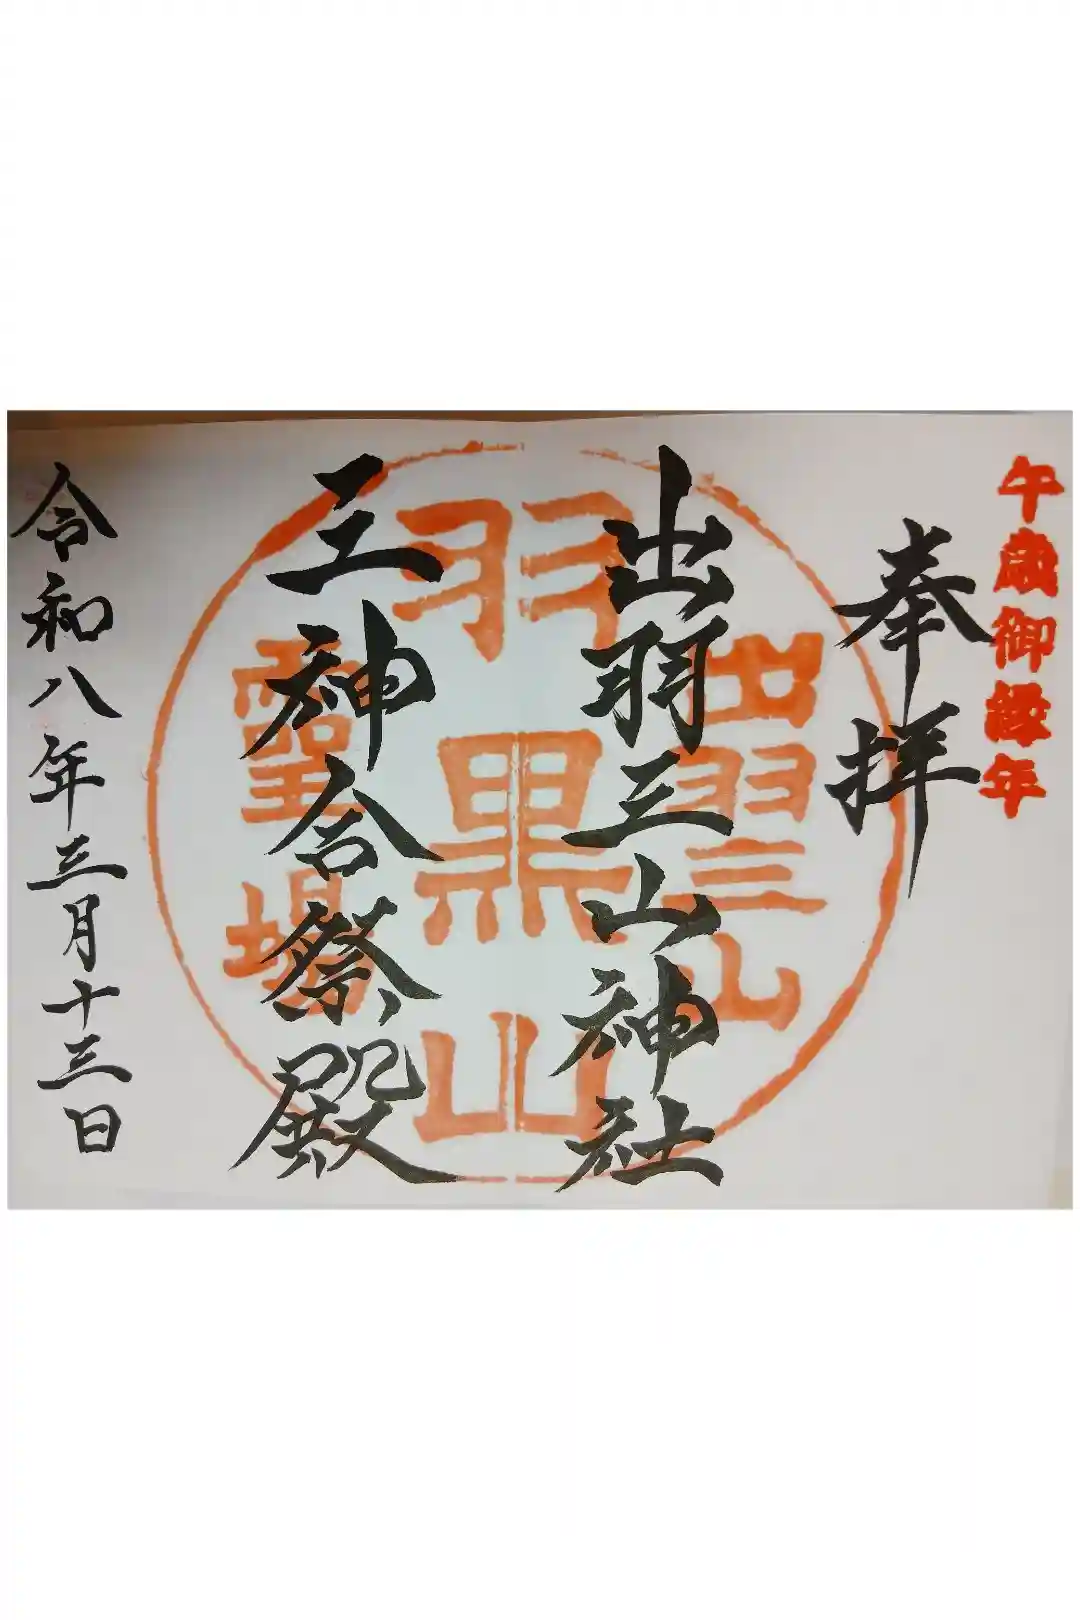 午歳御縁年
奉拝
出羽三山神社
三神合祭殿
令和八年三月十三日
出羽三山
羽黒山
霊場